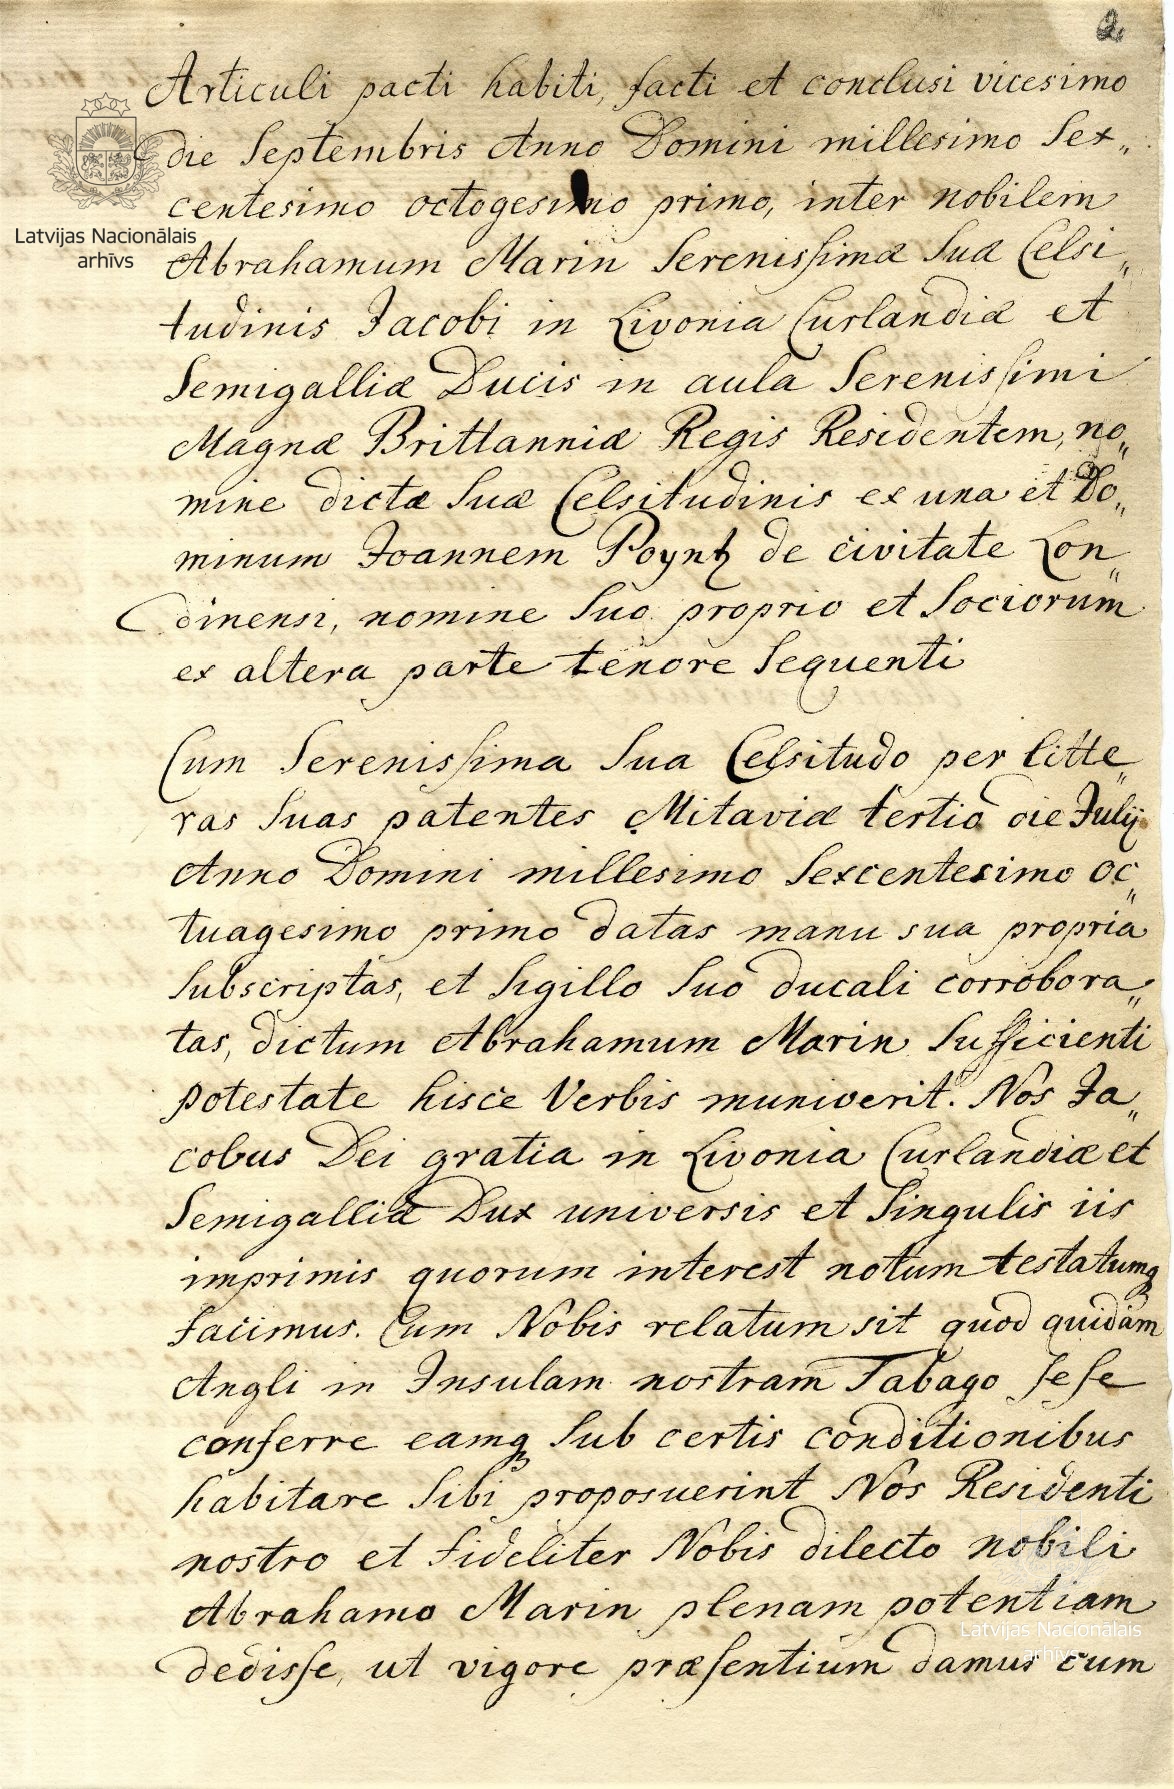 2.
Articuli pacti habiti, facti et conclusi vicesimo
die Septembris Anno Domini millesimo Sex„
centesimo octogesimo primo, inter nobilem
Abrahamum Marin Serenissimæ Suæ Celsi„
tudinis Jacobi in Livonia Curlandiæ et
Semigalliæ Ducis in aula Serenissimi
Magnæ Brittanniæ Regis Residentem, no„
mine dictæ Suæ Celsitudinis ex una et Do„
minum Joannem Poyntz de civitate Lon„
dinensi, nomine Suo proprio et Sociorum
ex altera parte tenore Sequenti
Cum Serenissima Sua Celsitudo per litte„
ras Suas patentes Mitaviæ tertio die Julij
Anno Domini millesimo Sexcentesimo oc„
tuagesimo primo datas manu sua propria
Subscriptas, et Sigillo Suo ducali corrobora„
tas, dictum Abrahamum Marin Sufficienti
potestate hisce Verbis muniverit. Nos Ja„
cobus Dei gratia in Livonia Curlandiæ et
Semigalliæ Dux universis et Singulis iis
imprimis quorum interest notum testatumq
facimus. Cum Nobis relatum sit quod quidam
Angli in Insulam nostram Tabago sese
conferre eamq Sub certis conditionibus
habitare Sibi proposuerint Nos Residenti
nostro et fideliter Nobis dilecto nobili
Abrahamo Marin plenam potentiam
dedisse, ut vigore præsentium damus cum
Latvijas Nacionālais
arhīvs
Latvijas Nacionālais
arhīvs